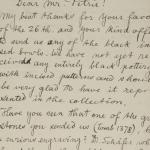 Dear Mr. Petrie!
My best thanks for your favou
of the 26th, and your kind offer
to send us any of the black in
sed bowls. We have not yet re
ceived any entirely black pottery
with incised patterns and should
be very glad to have it rep
sented in the collection.
Have you seen that one of the ga
stones you sended us (tomb 1378)
s curious engraving? Dr. Schäfer wh